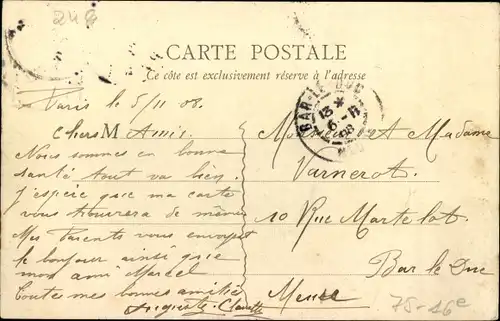 248
CARTE POSTALE
Ce côté est exclusivement réservé à l'adresse
BAR-LE-DUC
13 *
6 - 11
08
Paris le 5/11 08.
Chers M Amis.
Nous sommes en bonne
santé tout va bien.
J'espère que ma carte
vous trouvera de même
Mes Parents vous envoyent
le bonjour ainsi que
mon ami Marcel
toutes mes bonnes amitiés
Auguste
Monsieur et Madame
Varnerot
10 Rue Martelot.
Bar le Duc
Meuse
75-16e